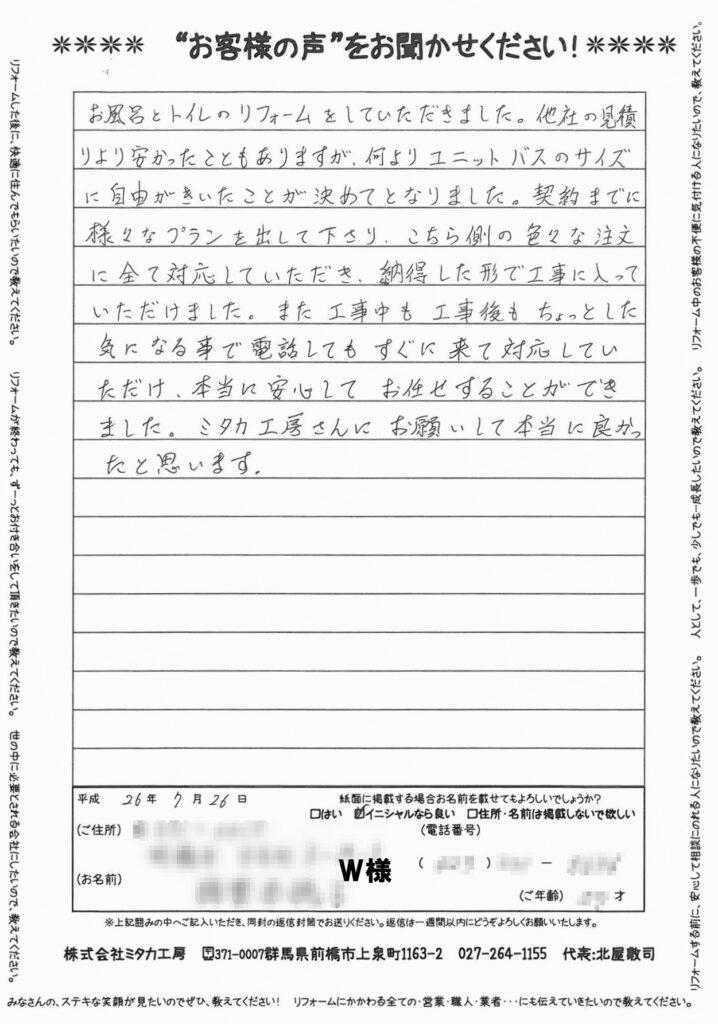 ＊＊＊＊ “お客様の声”をお聞かせください！＊＊＊＊
お風呂とトイレのリフォームをしていただきました。他社の見積
りより安かったこともありますが、何よりユニットバスのサイズ
に自由がきいたことが決めてとなりました。契約までに
様々なプランを出して下さり、こちら側の色々な注文
に全て対応していただき、納得した形で工事に入って
いただけました。また工事中も工事後もちょっとした
気になる事で電話してもすぐに来て対応してい
ただけ、本当に安心してお任せすることができ
ました。ミタカ工房さんにお願いして本当に良かっ
たと思います。
平成 26年 7月 26日
紙面に掲載する場合お名前を載せてもよろしいでしょうか?
□はい ☑イニシャルなら良い □住所・名前は掲載しないで欲しい
(ご住所)
(電話番号)
( ) －
(お名前)
W様
(ご年齢) 才
※上記囲みの中へご記入いただき、同封の返信封筒でお送りください。返信は一週間以内にどうぞよろしくお願いいたします。
株式会社ミタカ工房 〒371-0007群馬県前橋市上泉町1163-2 027-264-1155 代表:北屋敷司
みなさんの、ステキな笑顔が見たいのでぜひ、教えてください! リフォームにかかわる全ての・営業・職人・業者・・・にも伝えていきたいので教えてください。
リフォームした後に、快適に住んでもらいたいので教えてください。 リフォームが終わっても、ずーっとお付き合いをして頂きたいので教えてください。 世の中に必要とされる会社にしたいので、教えてください。
リフォーム中のお客様の不便に気付ける人になりたいので、教えてください。
人として、一歩でも、少しでも…成長したいので教えてください。
リフォームする前に、安心して相談にのれる人になりたいので教えてください。